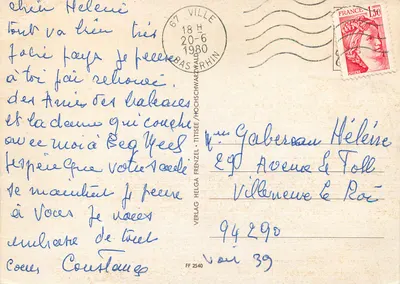 chien Helene
tout va bien très
Jolie pays je pense
à toi j'ai retrouvé
des Amies des
et la dame qui couche
avec moi à Beg Meel
J'espère que votre santé
se maintient Je pense
à Vous Je vous
embrasse de tout
coeur Constance
67 VILLE
18 H
20-6
1980
BAS RHIN
FRANCE
1,30
VERLAG HELGA FRENZEL · TITISEE/HOCHSCHWARZWALD
FF 2540
Gabereau Hélène
29 Avenue le Toll
Villeneuve le Roi
94290
Voir 39